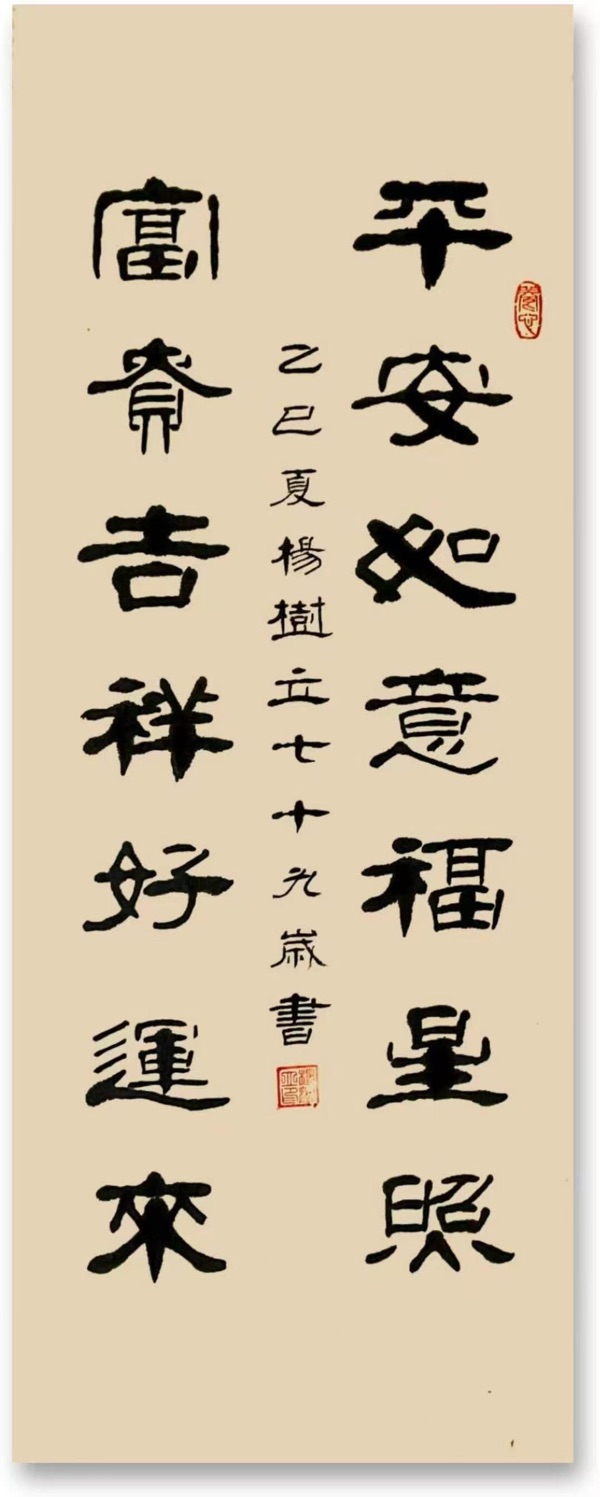 平安如意福星照
富貴吉祥好運來
乙巳夏楊樹立七十九歲書